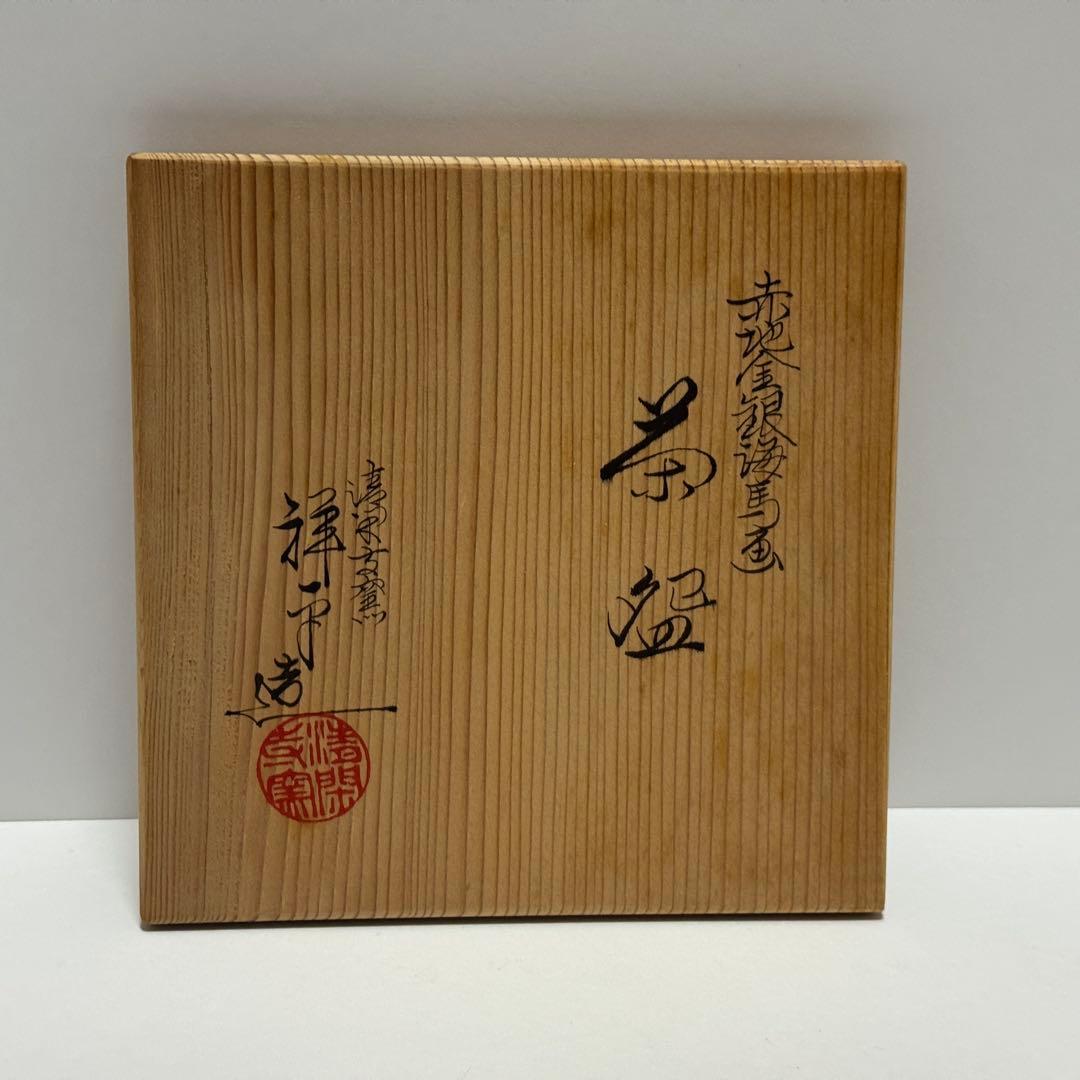 赤地金銀海馬画
茶盌
清閑寺窯
祥平造
清閑寺窯